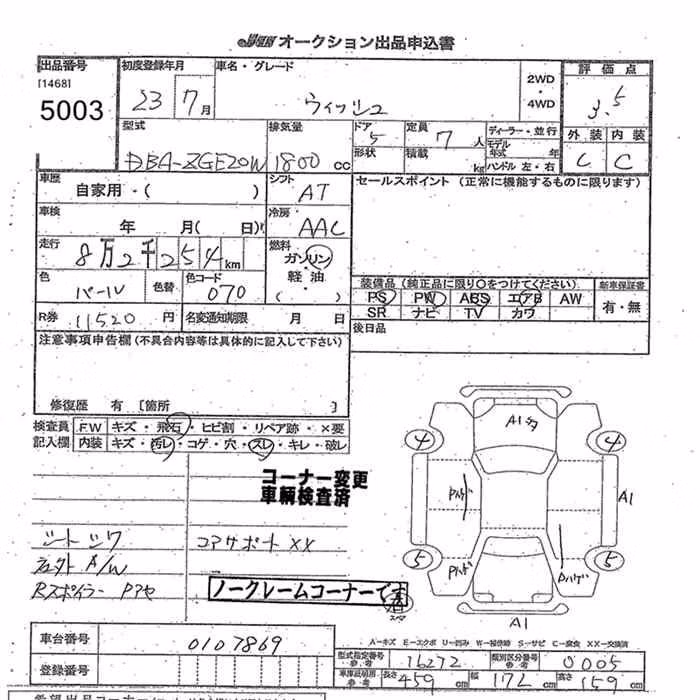 オークション出品申込書
出品番号 初度登録年月 車名・グレード 2WD・4WD 評価点
[1468]
5003 23 7月 ウィッシュ 3.5
型式 排気量 ドア 5 定員 7人 ディーラー・並行 外装 内装
形状 積載 kg モデル年式 年 ハンドル 左・右
DBA-ZGE20W 1800cc C C
車歴 自家用・( ) シフト AT セールスポイント (正常に機能するものに限ります)
車検 年 月( 日) 冷房 AAC
走行 8万2千254km 燃料 ガソリン・軽油・( )
色 パール 色替 色コード 070
装備品 (純正品に限り○をつけてください) 新車保証書
PS PW ABS エアB AW 有・無
SR ナビ TV カワ
R券 11520円 名変通知期限 月 日 後日品
注意事項申告欄 (不具合内容等は具体的に記入して下さい)
修復歴 有 [箇所 ]
検査員 F.W キズ・飛石・ヒビ割・リペア跡・×要
記入欄 内装 キズ・汚れ・コゲ・穴・スレ・キレ・破レ
コーナー変更
車輌検査済
シートシワ コアサポートXX
A/W
Rスポイラー
ノークレームコーナーです
A1
4 4
Pハゲ A1
5 Pハゲ Pハゲ 5
スペア
A1
A-キズ E-エクボ U-凹み W-補修跡 S-サビ C-腐食 XX-交換済
車台番号 0107869 型式指定番号 参考 16272 類別区分番号 参考 0005
登録番号 車庫証明用 参考 長さ 459cm 幅 172cm 高さ 159cm